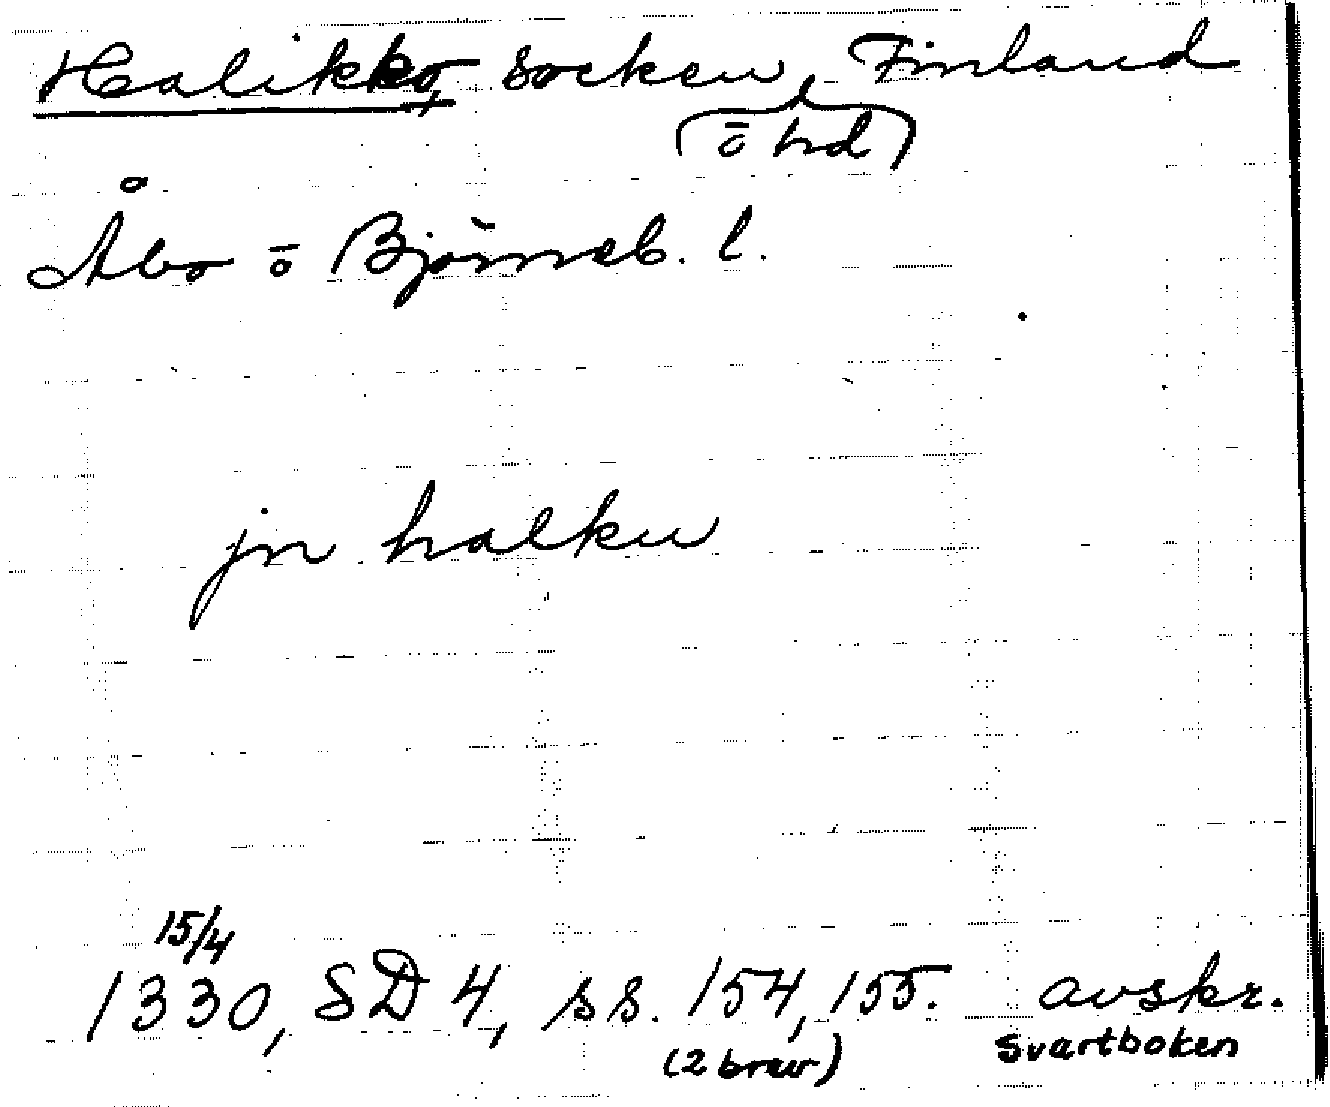 Halikko, socken, Finland
(ō hd)
Åbo ō Björneb. l.
jn halku
15/4
1330, SD 4, ss. 154, 155. avskr.
(2 brev) Svartboken